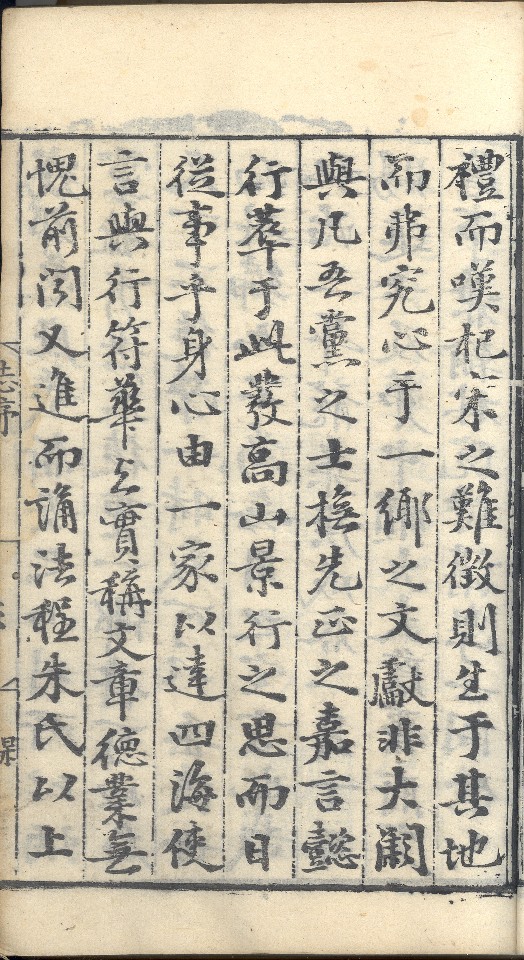 禮而嘆杞宋之難徴則生于其地
而弗究心于一鄉之文獻非大闕
與凡吾黨之士撫先正之嘉言懿
行萃于此發高山景行之思而日
從事乎身心由一家以達四海使
言與行符華与實稱文章德業無
愧前聞又進而誦法程朱氏以上
志序